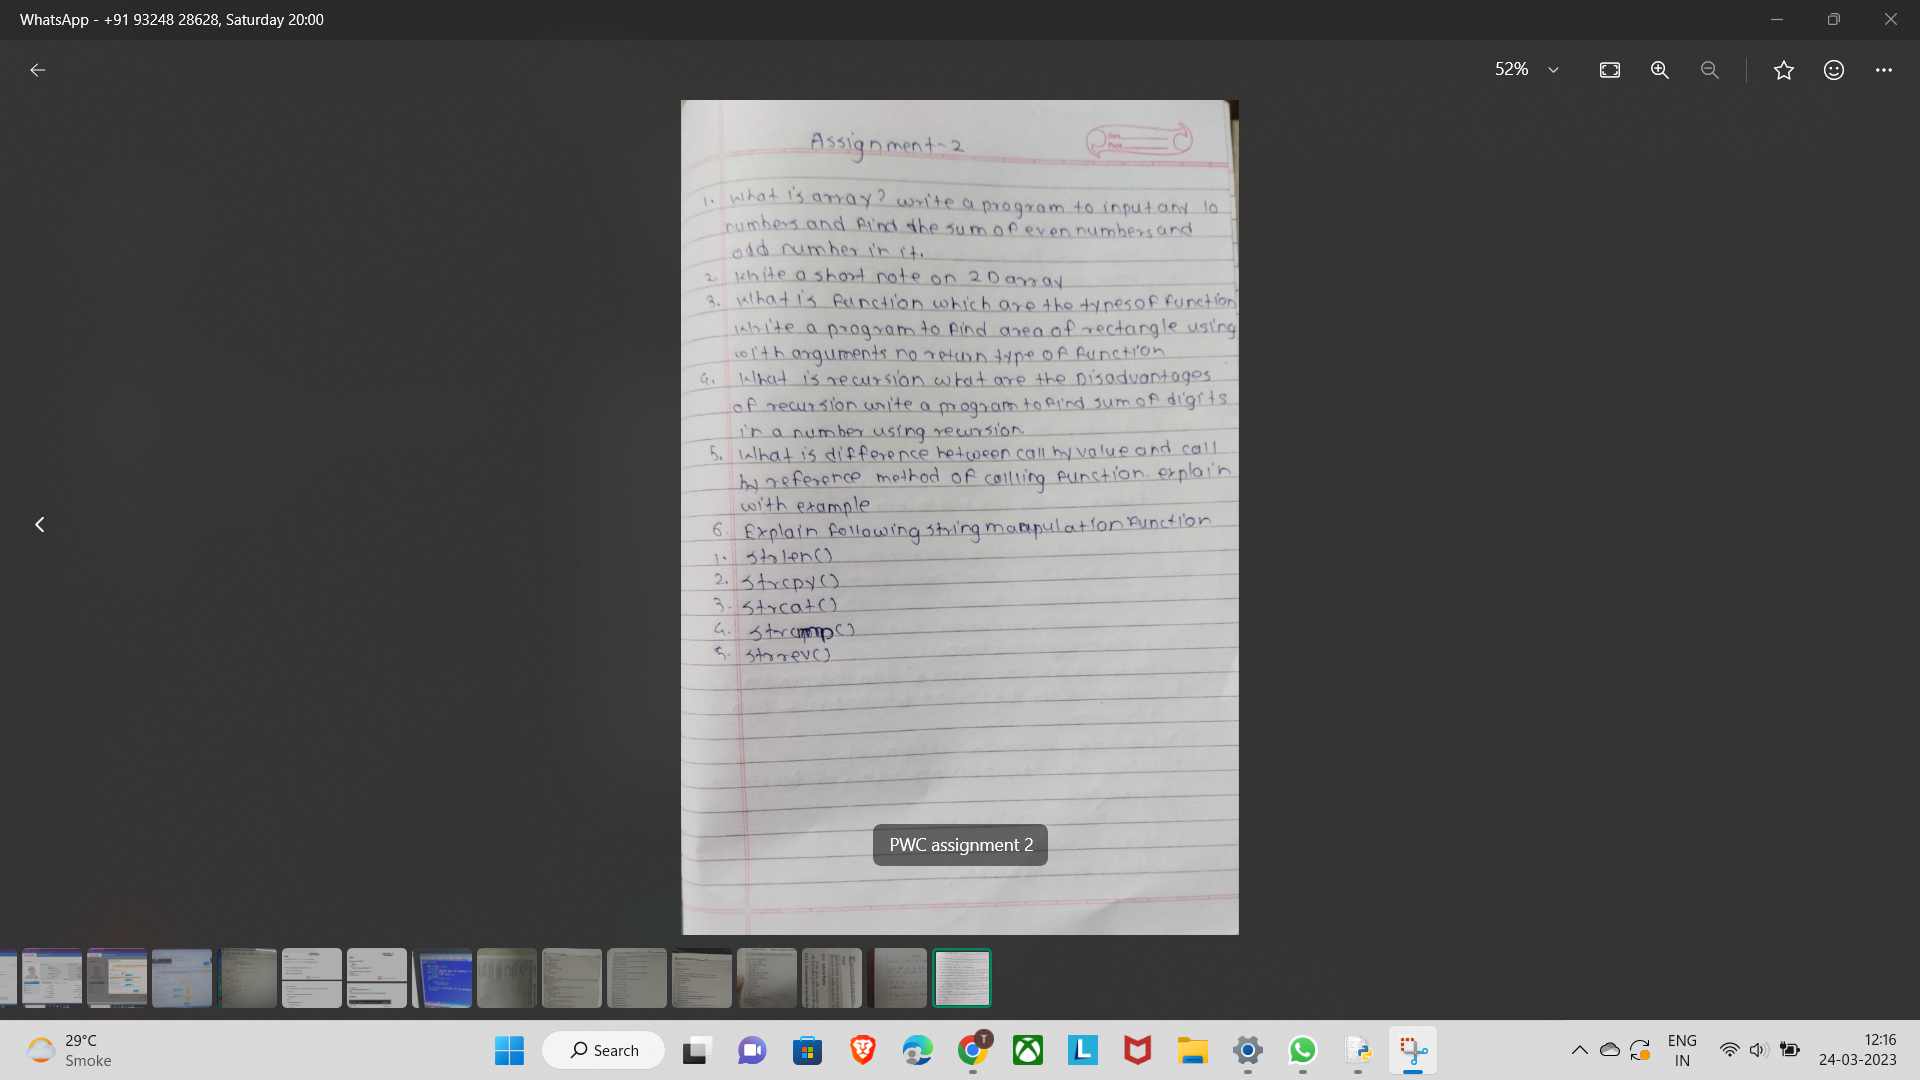 WhatsApp - +91 93248 28628, Saturday 20:00
52%
Assignment-2
Date
Page
1. What is array? write a program to input any 10
numbers and find the sum of even numbers and
odd number in it.
2. White a short note on 2D array
3. What is function which are the types of function
Write a program to find area of rectangle using
with arguments no return type of function
4. What is recursion what are the Disadvantages
of recursion write a program to find sum of digits
in a number using recursion.
5. What is difference between call by value and call
by reference method of callling function. explain
with example
6. Explain following string manpulation function
1. strlen()
2. strcpy()
3. strcat()
4. strcmp()
5. strrev()
PWC assignment 2
29°C
Smoke
Search
T
ENG
IN
12:16
24-03-2023